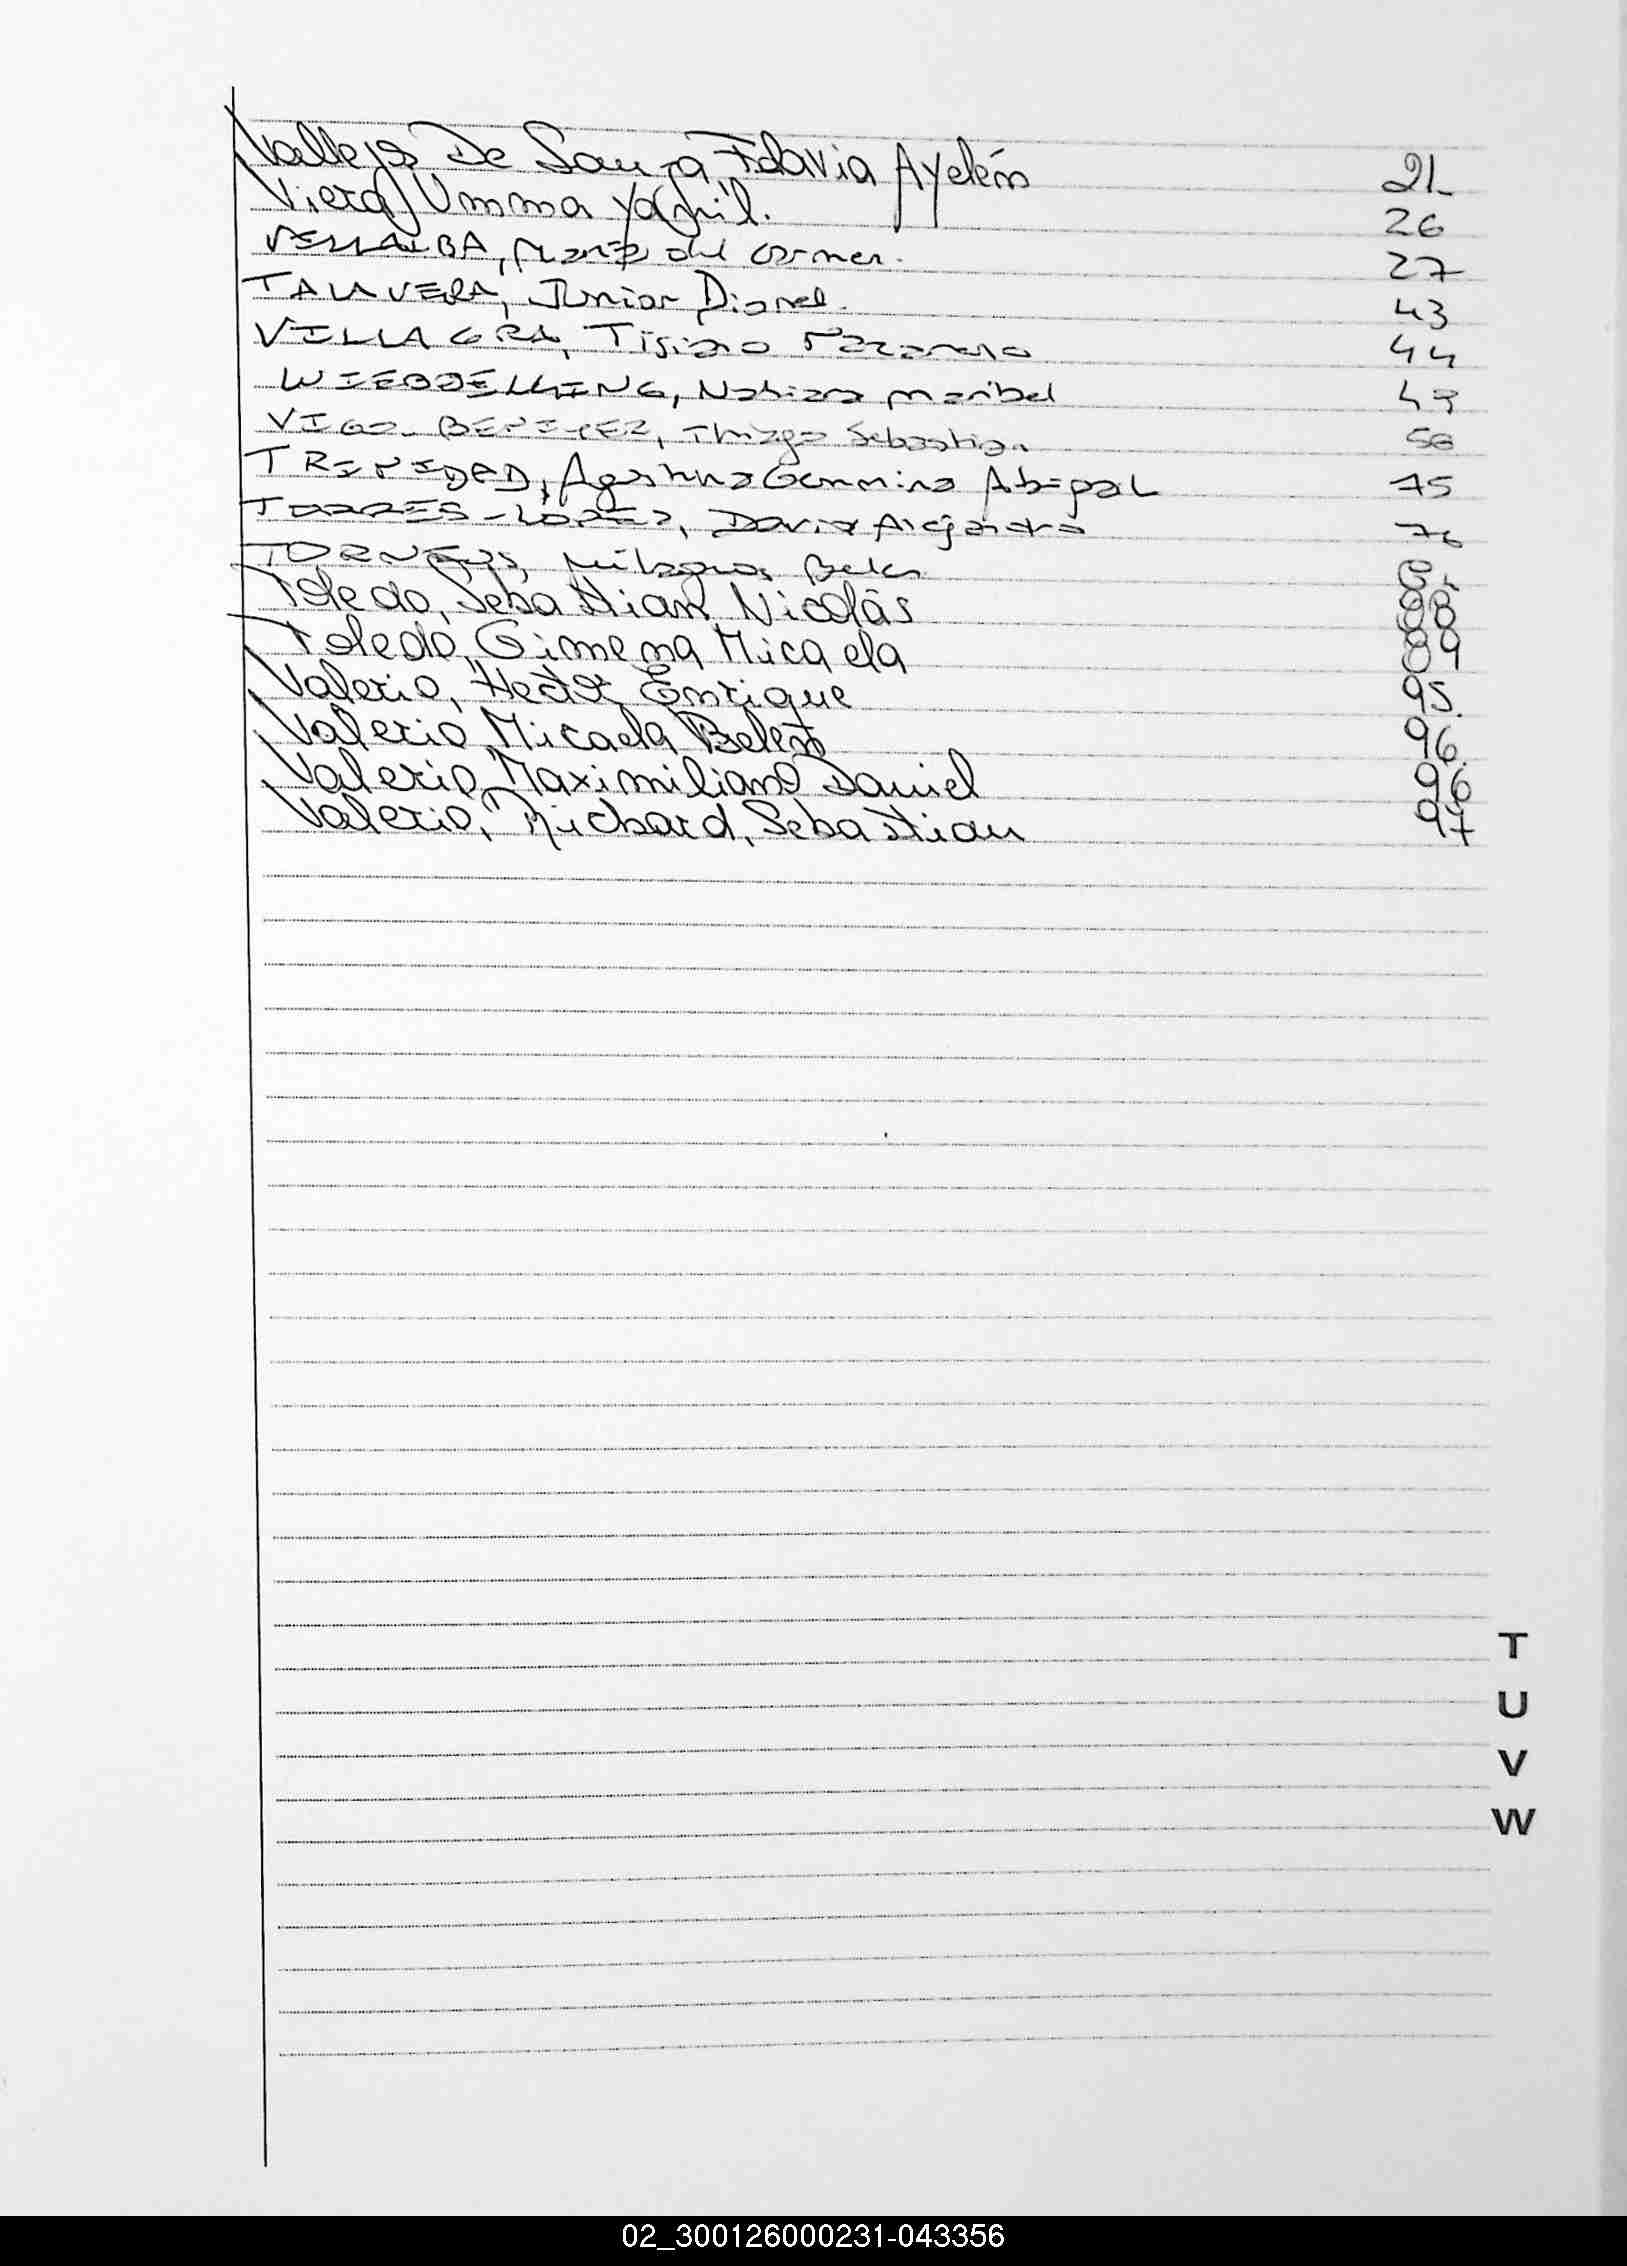 Vallejos De Souza, Flavia Ayelén 21
Viera, Umma Yaquil. 26
VILLALBA, Maria del Carmen. 27
TALAVERA, Junior Dionel. 43
VILLAGRA, Tisiano 44
WIEBBELLING, Nahiara Maribel 49
VIGO-BENITEZ, Thiago Sebastian 50
TRINIDAD, Agostina Gemmina Abigal 75
TORRES-LOPEZ, Dario Alejandro 76
Milagros Belen
Toledo, Sebastian Nicolás 88
Toledo, Gimena Micaela 89
Valerio, Hector Enrique 95.
Valerio, Micaela Belen 96.
Valerio, Maximiliano Daniel 96
Valerio, Richard, Sebastian 97
T
U
V
W
02_300126000231-043356